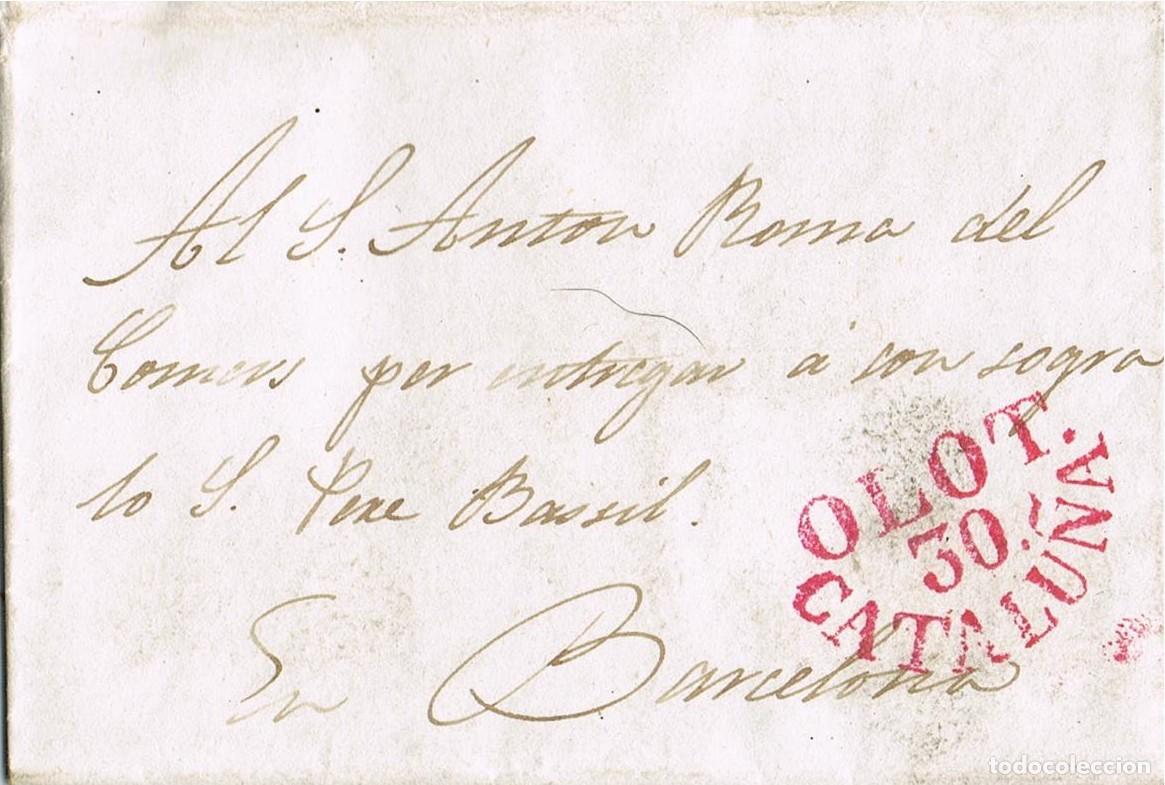 Al S. Anton Roma del
Comers per entregar á son sogra
lo S. Pere Bassil.
En Barcelona
OLOT.
30
CATALUÑA
todocoleccion